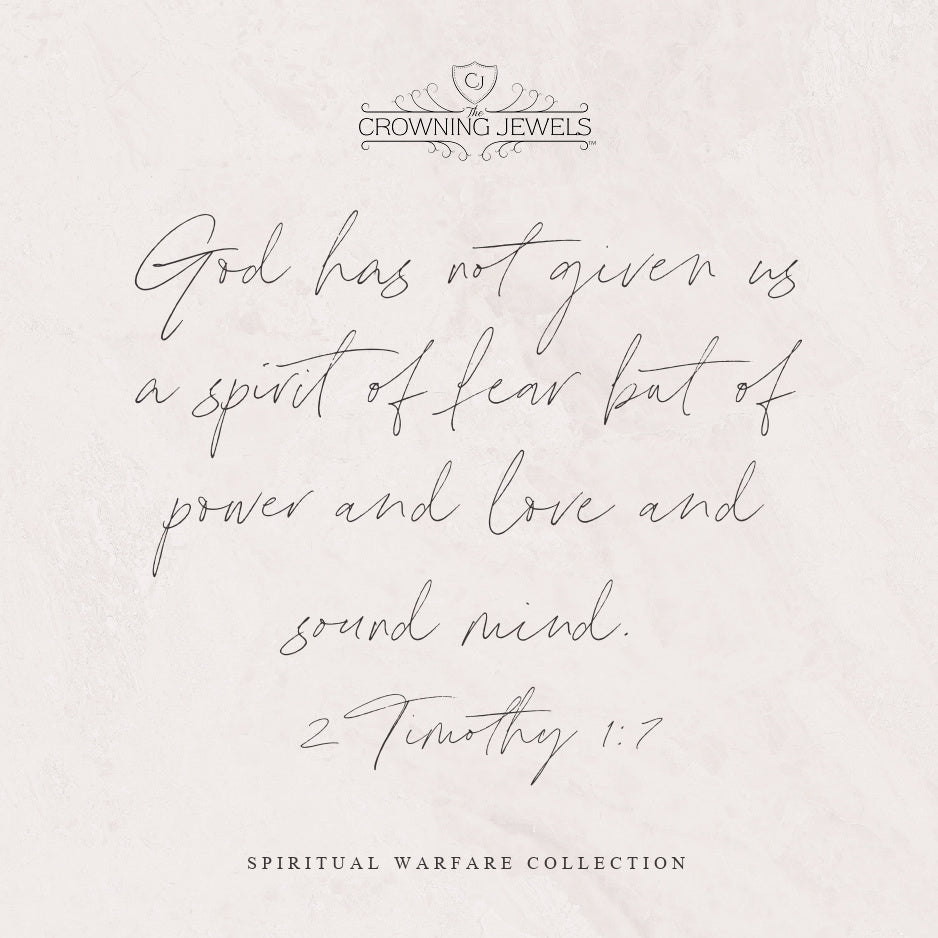 CJ
The
CROWNING JEWELS™
God has not given us
a spirit of fear but of
power and love and
sound mind.
2 Timothy 1:7
SPIRITUAL WARFARE COLLECTION